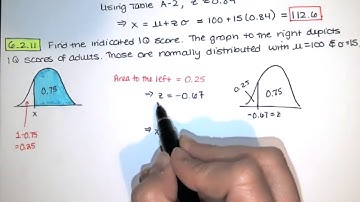 Using Table A-2, z = 0.84
⇒ x = μ + zσ = 100 + 15 (0.84) = 112.6
6.2.11 Find the indicated IQ score. The graph to the right depicts
IQ scores of adults. Those are normally distributed with μ=100 & σ=15.
0.75
x
1-0.75
=0.25
Area to the left = 0.25
⇒ z = -0.67
⇒ x
0.25
0.75
-0.67 = z